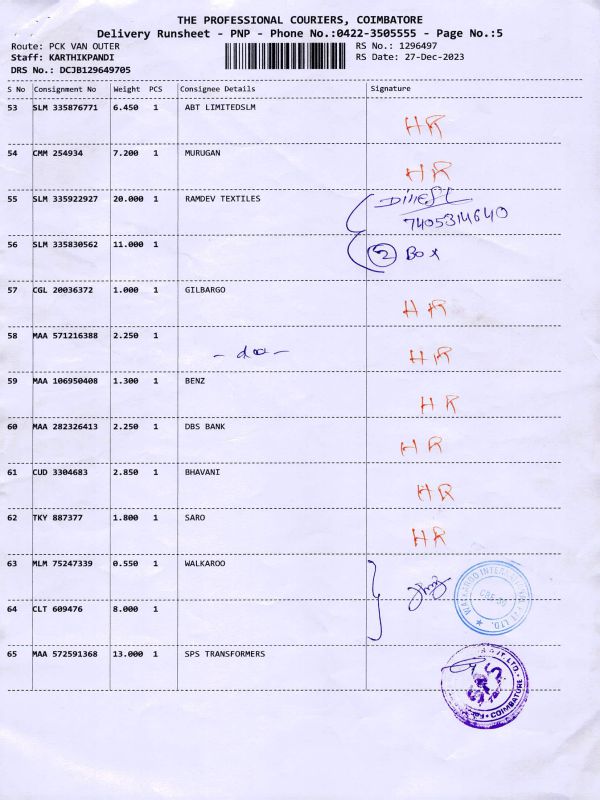 THE PROFESSIONAL COURIERS, COIMBATORE
Delivery Runsheet - PNP - Phone No.:0422-3505555 - Page No.:5
Route: PCK VAN OUTER RS No.: 1296497
Staff: KARTHIKPANDI RS Date: 27-Dec-2023
DRS No.: DCJB129649705
S No Consignment No Weight PCS Consignee Details Signature
53 SLM 335876771 6.450 1 ABT LIMITEDSLM
HR
54 CMM 254934 7.200 1 MURUGAN
HR
55 SLM 335922927 20.000 1 RAMDEV TEXTILES
7405314640
56 SLM 335830562 11.000 1
2 Box
57 CGL 20036372 1.000 1 GILBARGO
HR
58 MAA 571216388 2.250 1
HR
59 MAA 106950408 1.300 1 BENZ
HR
60 MAA 282326413 2.250 1 DBS BANK
HR
61 CUD 3304683 2.850 1 BHAVANI
HR
62 TKY 887377 1.800 1 SARO
HR
63 MLM 75247339 0.550 1 WALKAROO
64 CLT 609476 8.000 1
65 MAA 572591368 13.000 1 SPS TRANSFORMERS
COIMBATORE